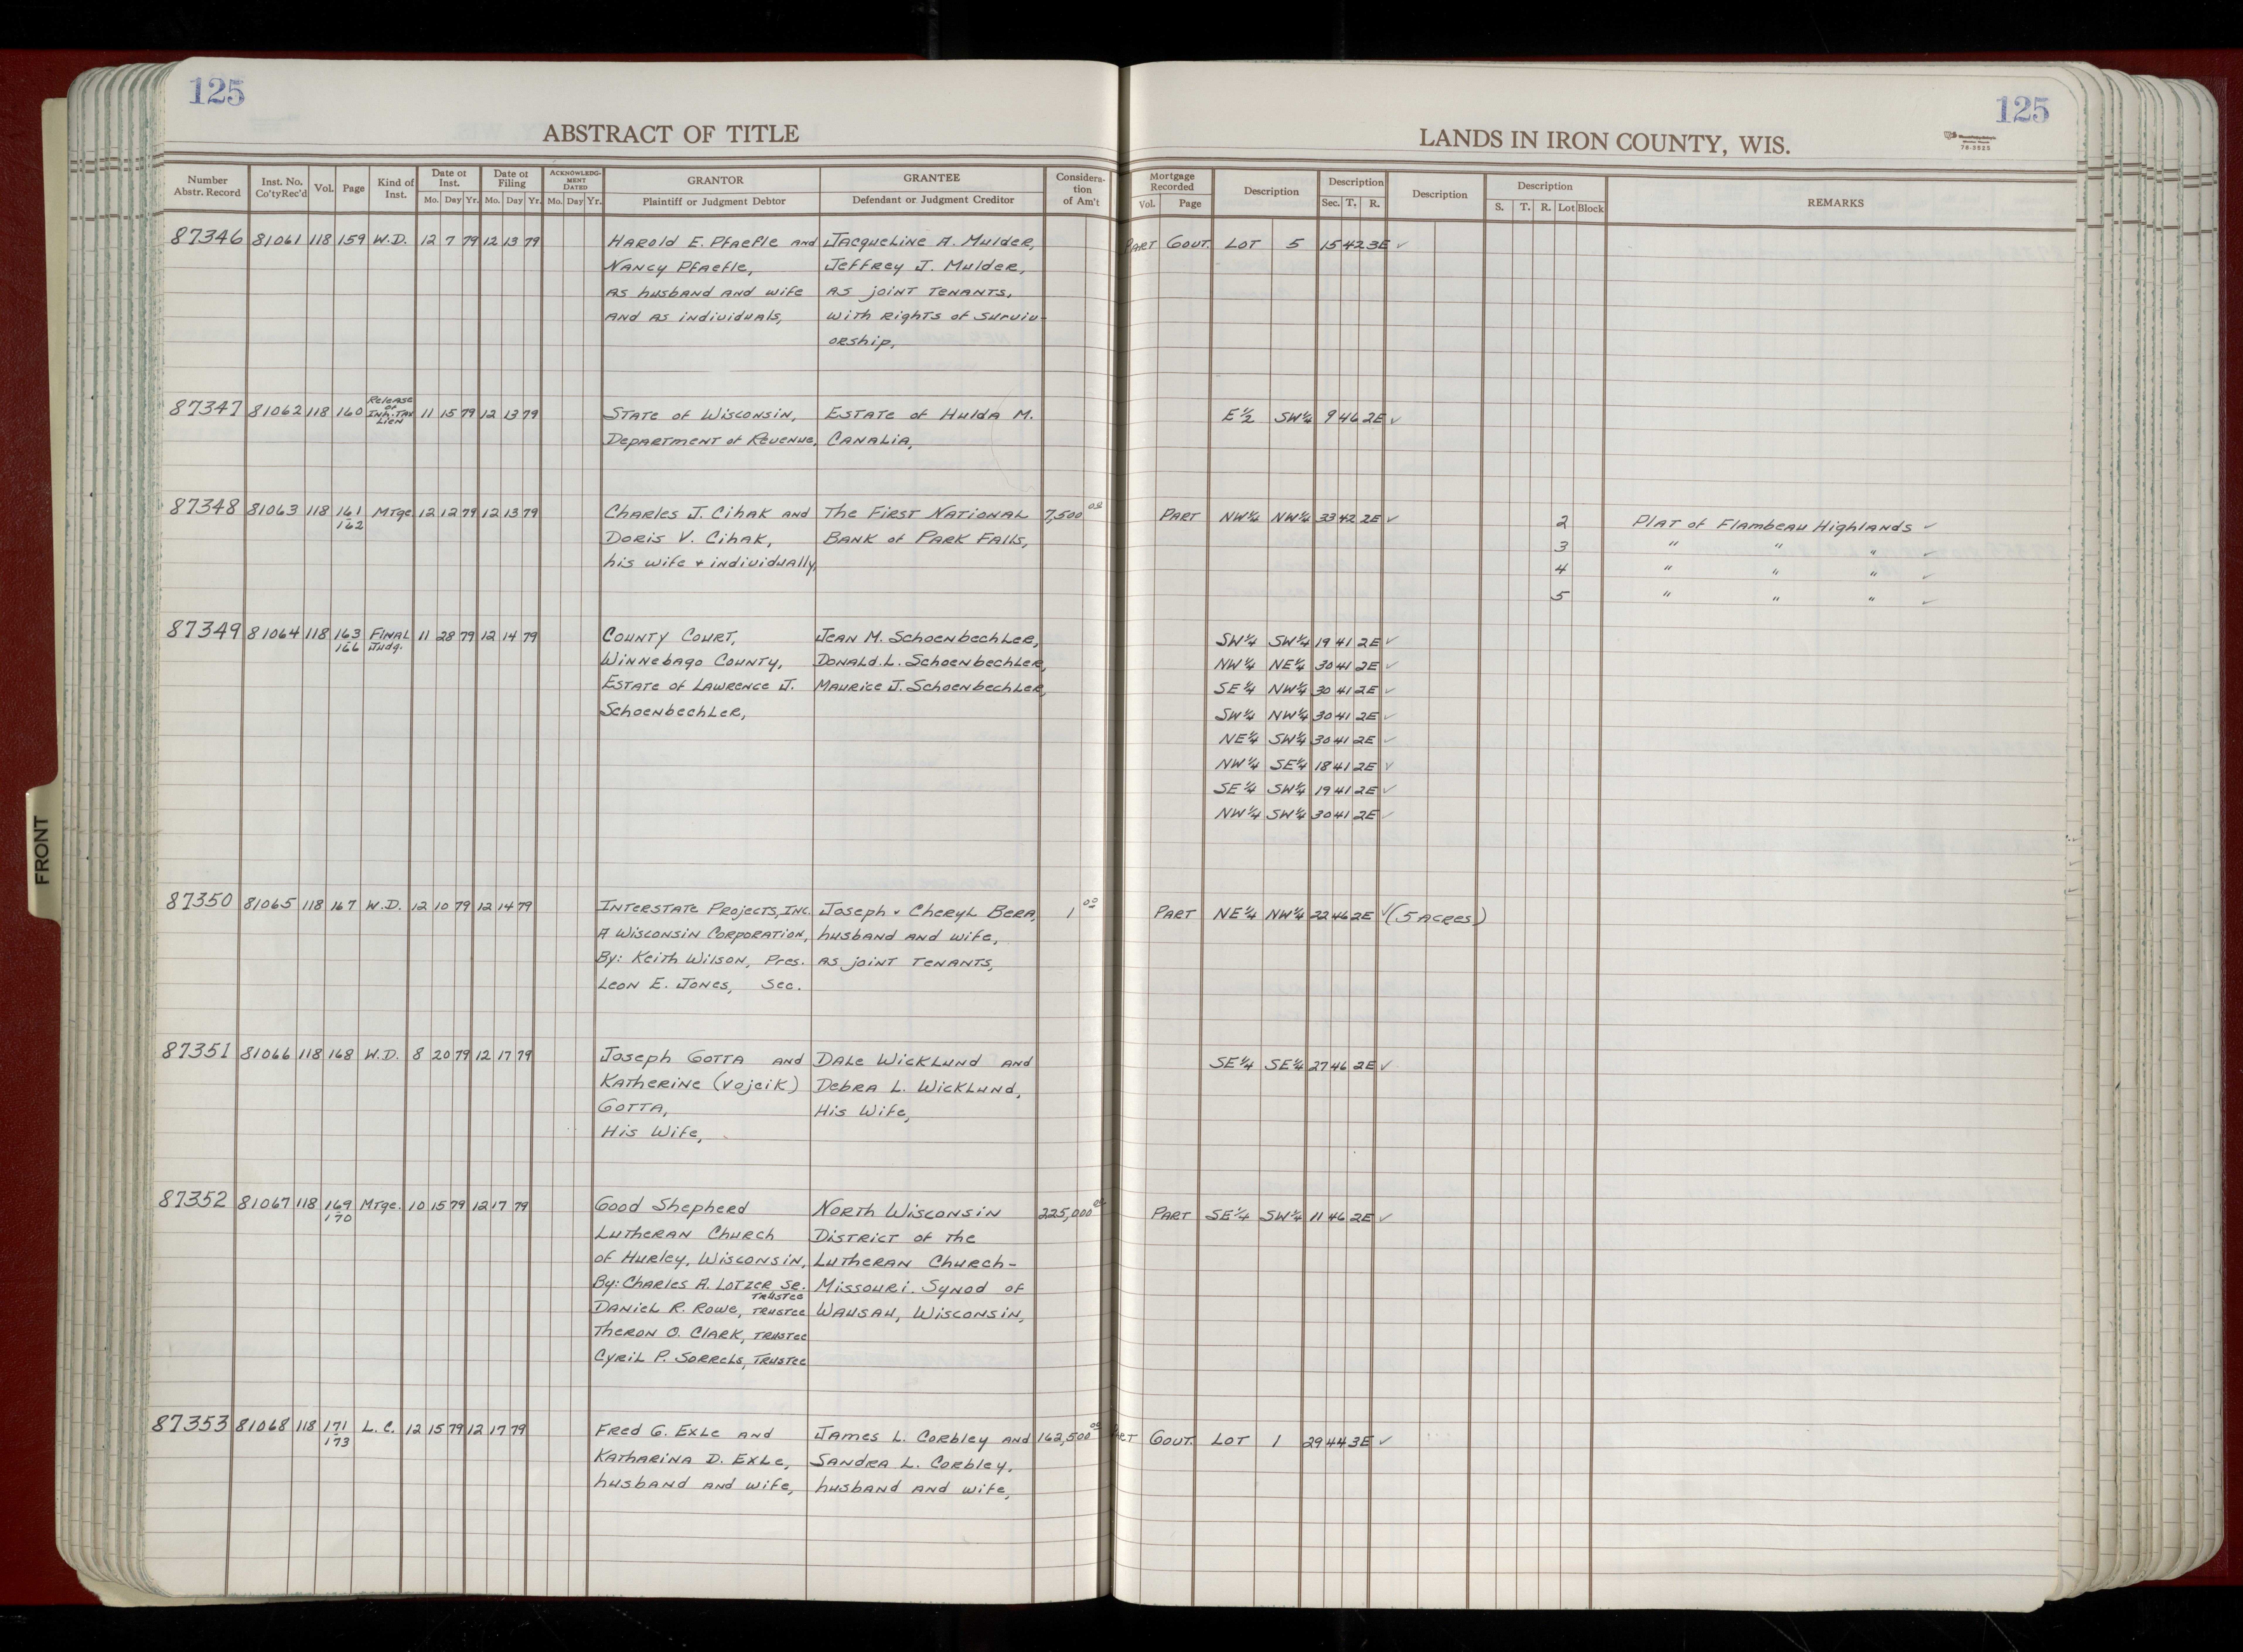 125
ABSTRACT OF TITLE
Number Abstr. Record | Inst. No. Co'tyRec'd | Vol. | Page | Kind of Inst. | Date of Inst. Mo. Day Yr. | Date of Filing Mo. Day Yr. | ACKNOWLEDGMENT DATED Mo. Day Yr. | GRANTOR Plaintiff or Judgment Debtor | GRANTEE Defendant or Judgment Creditor | Consideration of Am't
87346 81061 118 159 W.D. 12 7 79 12 13 79 Harold E. Pfaefle and Jacqueline A. Mulder,
Nancy Pfaefle, Jeffrey J. Mulder,
as husband and wife as joint tenants,
and as individuals, with rights of surviv-
orship,
87347 81062 118 160 Release of Inh. Tax Lien 11 15 79 12 13 79 State of Wisconsin, Estate of Hulda M.
Department of Revenue, Canalia,
87348 81063 118 161-162 Mtge 12 12 79 12 13 79 Charles J. Cihak and The First National 7,500 00
Doris V. Cihak, Bank of Park Falls,
his wife + individually,
87349 81064 118 163-166 Final Judg. 11 28 79 12 14 79 County Court, Jean M. Schoenbechler,
Winnebago County, Donald L. Schoenbechler,
Estate of Lawrence J. Maurice J. Schoenbechler,
Schoenbechler,
87350 81065 118 167 W.D. 12 10 79 12 14 79 Interstate Projects, Inc. Joseph + Cheryl Bera, 1 00
A Wisconsin Corporation, husband and wife,
By: Keith Wilson, Pres. as joint tenants,
Leon E. Jones, Sec.
87351 81066 118 168 W.D. 8 20 79 12 17 79 Joseph Gotta and Dale Wicklund and
Katherine (Vojcik) Debra L. Wicklund,
Gotta, His Wife,
His Wife,
87352 81067 118 169-170 Mtge. 10 15 79 12 17 79 Good Shepherd North Wisconsin 225,000 00
Lutheran Church District of the
of Hurley, Wisconsin, Lutheran Church-
By: Charles A. Lotzer Sr. Trustee Missouri Synod of
Daniel R. Rowe, Trustee Wausau, Wisconsin,
Theron O. Clark, Trustee
Cyril P. Sorrels, Trustee
87353 81068 118 171-173 L.C. 12 15 79 12 17 79 Fred G. Exle and James L. Corbley and 162,500 00
Katharina D. Exle, Sandra L. Corbley,
husband and wife, husband and wife,
FRONT
125
LANDS IN IRON COUNTY, WIS.
76-3525
Mortgage Recorded Vol. Page | Description | Description Sec. T. R. | Description | Description S. T. R. Lot Block | REMARKS
Part Gout. Lot 5 15 42 3E ✓
E½ SW¼ 9 46 2E ✓
Part NW¼ NW¼ 33 42 2E ✓ 2 Plat of Flambeau Highlands ✓
3 " " " ✓
4 " " " ✓
5 " " " ✓
SW¼ SW¼ 19 41 2E ✓
NW¼ NE¼ 30 41 2E ✓
SE¼ NW¼ 30 41 2E ✓
SW¼ NW¼ 30 41 2E ✓
NE¼ SW¼ 30 41 2E ✓
NW¼ SE¼ 18 41 2E ✓
SE¼ SW¼ 19 41 2E ✓
NW¼ SW¼ 30 41 2E ✓
Part NE¼ NW¼ 22 46 2E ✓ (5 acres)
SE¼ SE¼ 27 46 2E ✓
Part SE¼ SW¼ 11 46 2E ✓
Part Gout. Lot 1 29 44 3E ✓